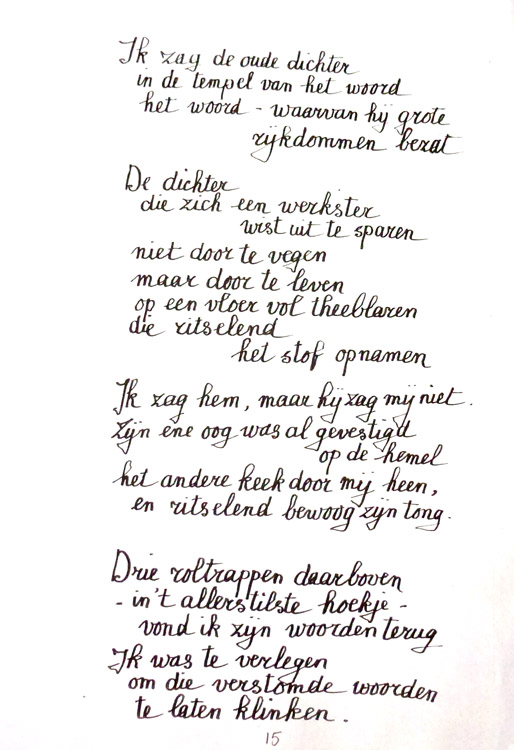 Ik zag de oude dichter
in de tempel van het woord
het woord - waarvan hij grote
rijkdommen bezat
De dichter
die zich een werkster
wist uit te sparen
niet door te vegen
maar door te leven
op een vloer vol theeblaren
die ritselend
het stof opnamen
Ik zag hem, maar hij zag mij niet.
Zijn ene oog was al gevestigd
op de hemel
het andere keek door mij heen,
en ritselend bewoog zijn tong.
Drie roltrappen daarboven
- in 't allerstilste hoekje -
vond ik zijn woorden terug
Ik was te verlegen
om die verstomde woorden
te laten klinken.
15